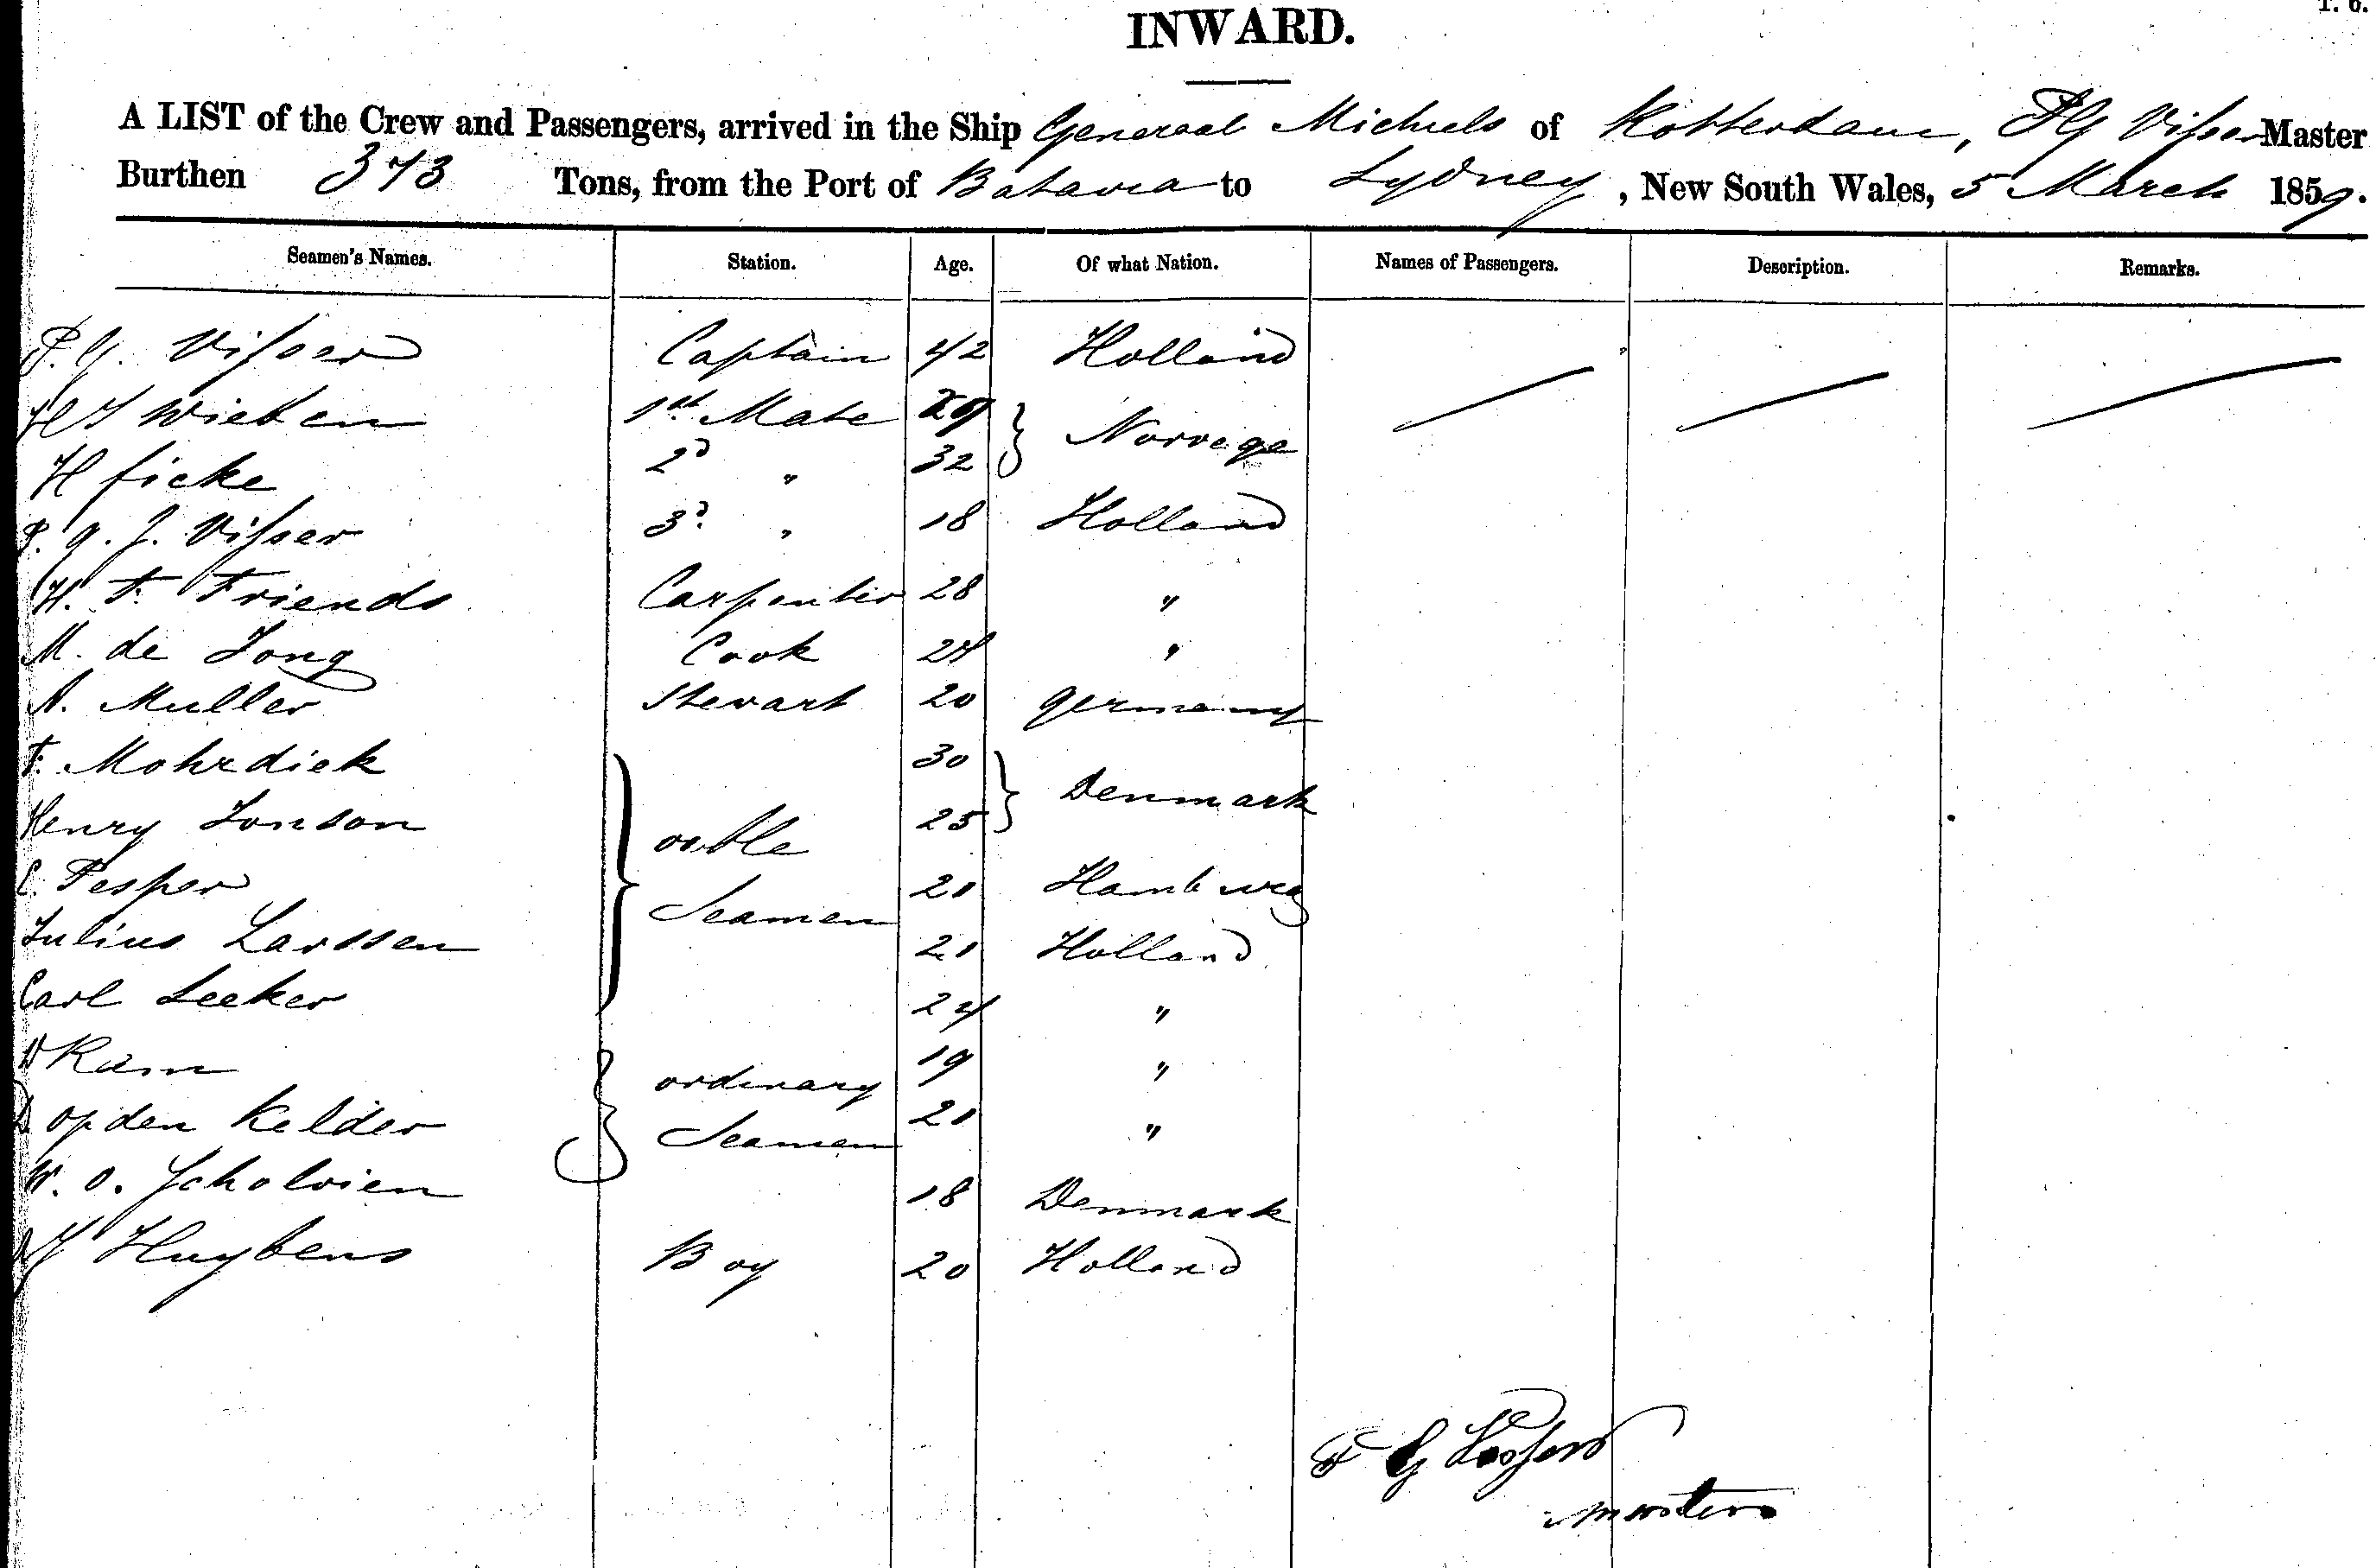 INWARD.
A LIST of the Crew and Passengers, arrived in the Ship Generaal Michiels of Rotterdam, PG Visser Master
Burthen 373 Tons, from the Port of Batavia to Sydney, New South Wales, 5 March 1859.
Seamen's Names. Station. Age. Of what Nation. Names of Passengers. Description. Remarks.
P. G. Visser Captain 42 Holland
Wieben 1st Mate 29 Norvege
H ficke 2d " 32
P. G. J. Visser 3d. " 18 Holland
H. F. Friends Carpenter 28 "
M. de Jong Cook 24 "
A. Muller Stevart 20 Germany
F. Mohrdiek 30 Denmark
Henry Jonson 25
C. Pesper 21 Hamburg
Seamen
Julius Larssen 21 Holland
Carl Leeker 24 "
Ram ordinary 19 "
D op den Kelder Seamen 21 "
W. O. Scholvien 18 Denmark
Huybens Boy 20 Holland
P G Visser
master